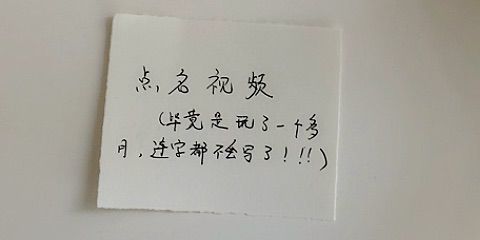 点名视频
(毕竟是玩了一个多
月，连字都不会写了！！！)